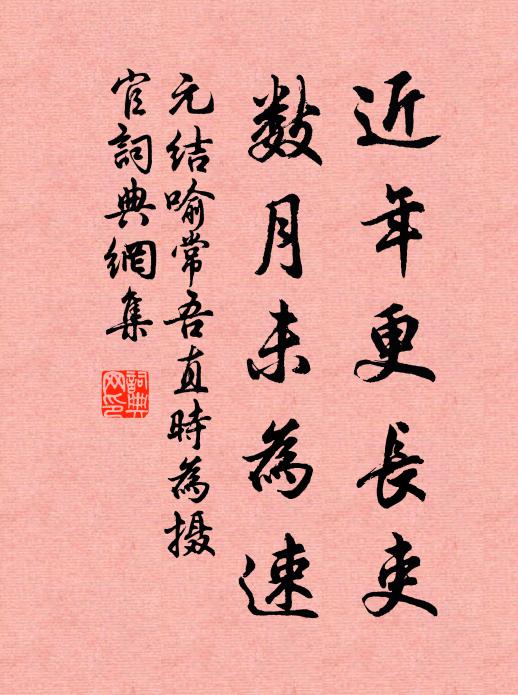 近年更長吏
数月未為速
元结喻常吾直時為摄
官詞典網集
詞典
网印